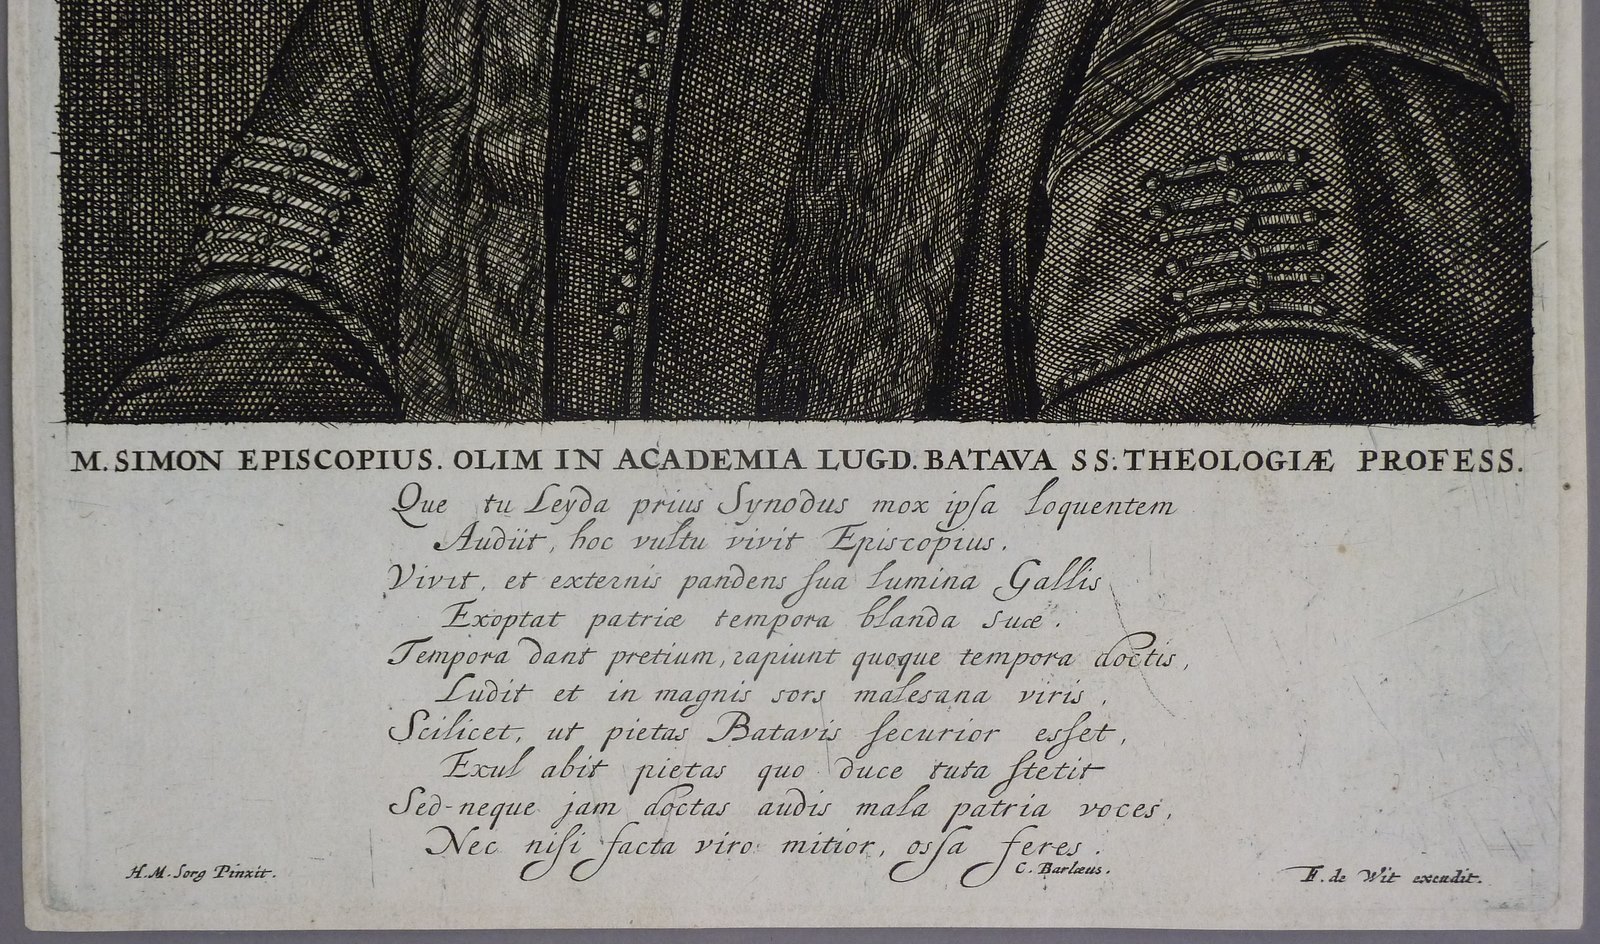 M. SIMON EPISCOPIUS. OLIM IN ACADEMIA LUGD. BATAVA SS: THEOLOGIÆ PROFESS.
Que tu Leyda prius Synodus mox ipſa loquentem
Audiit, hoc vultu vivit Episcopius.
Vivit, et externis pandens ſua lumina Gallis
Exoptat patriæ tempora blanda suæ.
Tempora dant pretium, rapiunt quoque tempora doctis,
Ludit et in magnis sors malesana viris,
Scilicet, ut pietas Batavis ſecurior esſet,
Exul abit pietas quo duce tuta ſtetit
Sed neque jam doctas audis mala patria voces,
Nec niſi facta viro mitior, osſa feres.
H. M. Sorg Pinxit.
C. Barlæus.
F. de Wit excudit.